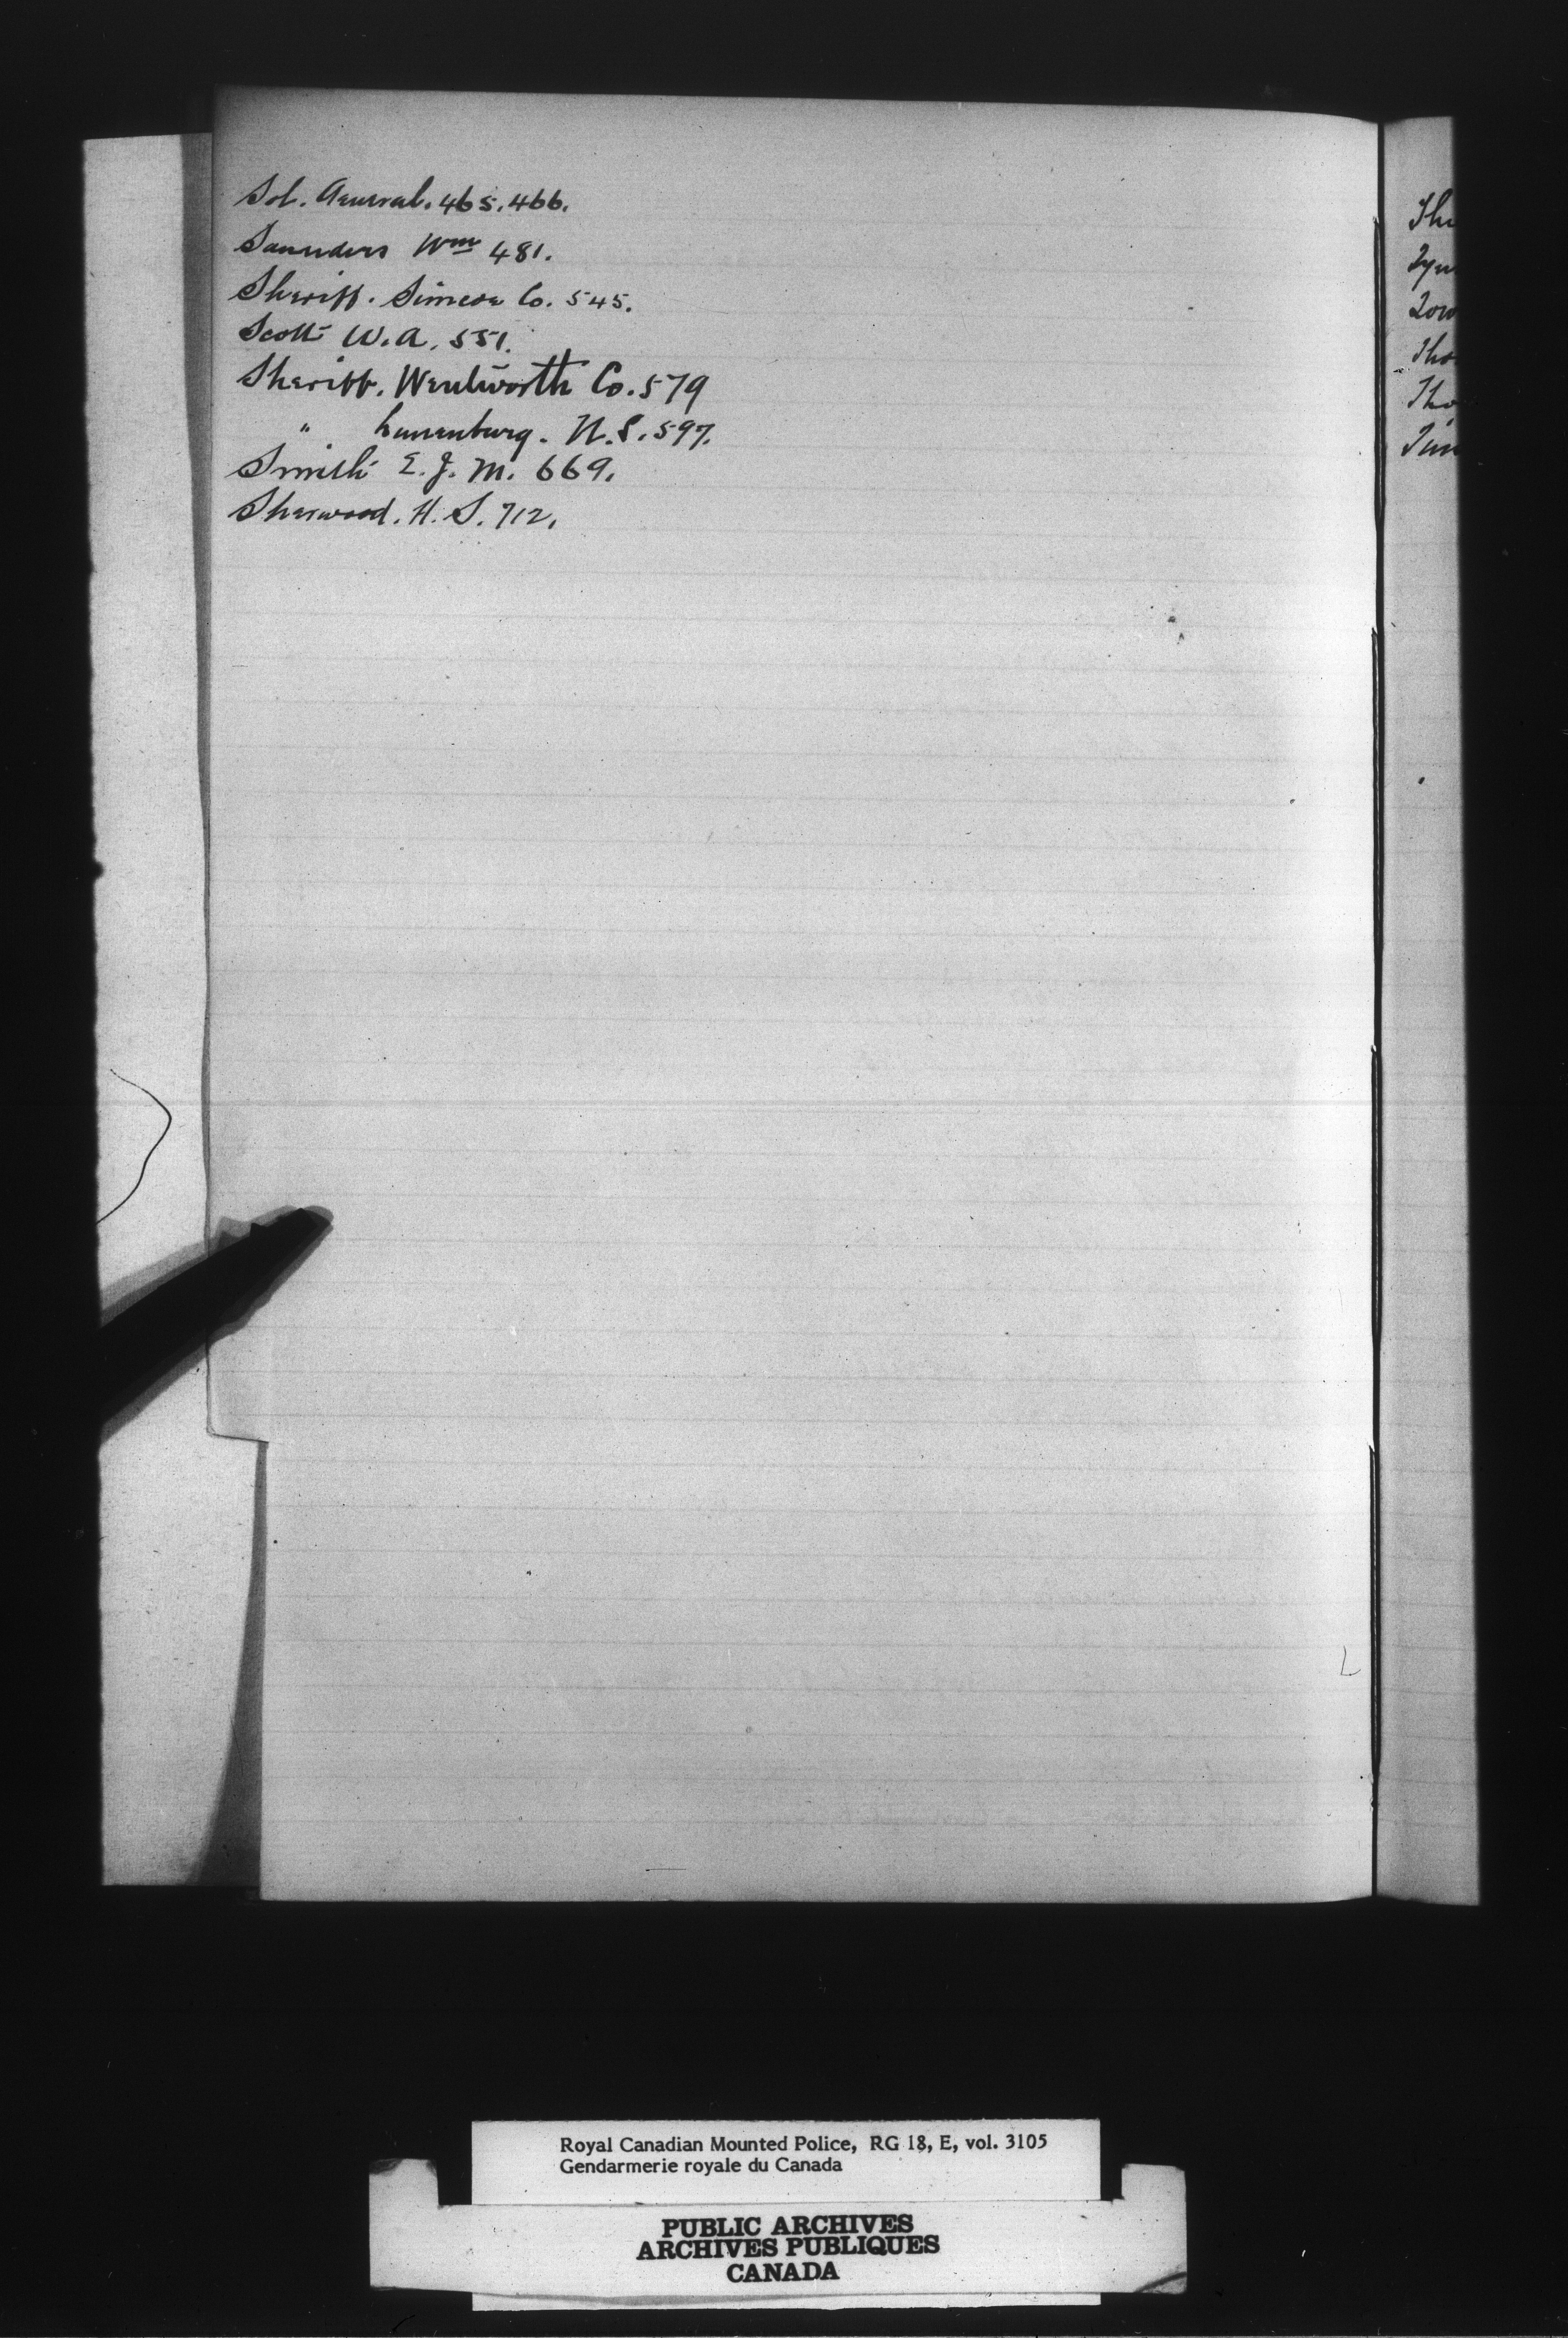 Sol. General. 465. 466.
Saunders Wm 481.
Sheriff. Simcoe Co. 545.
Scott W. A. 551.
Sheriff. Wentworth Co. 579
" Lunenburg. N. S. 597.
Smith E. J. M. 669.
Sherwood. H. S. 712.
Royal Canadian Mounted Police, RG 18, E, vol. 3105
Gendarmerie royale du Canada
PUBLIC ARCHIVES
ARCHIVES PUBLIQUES
CANADA